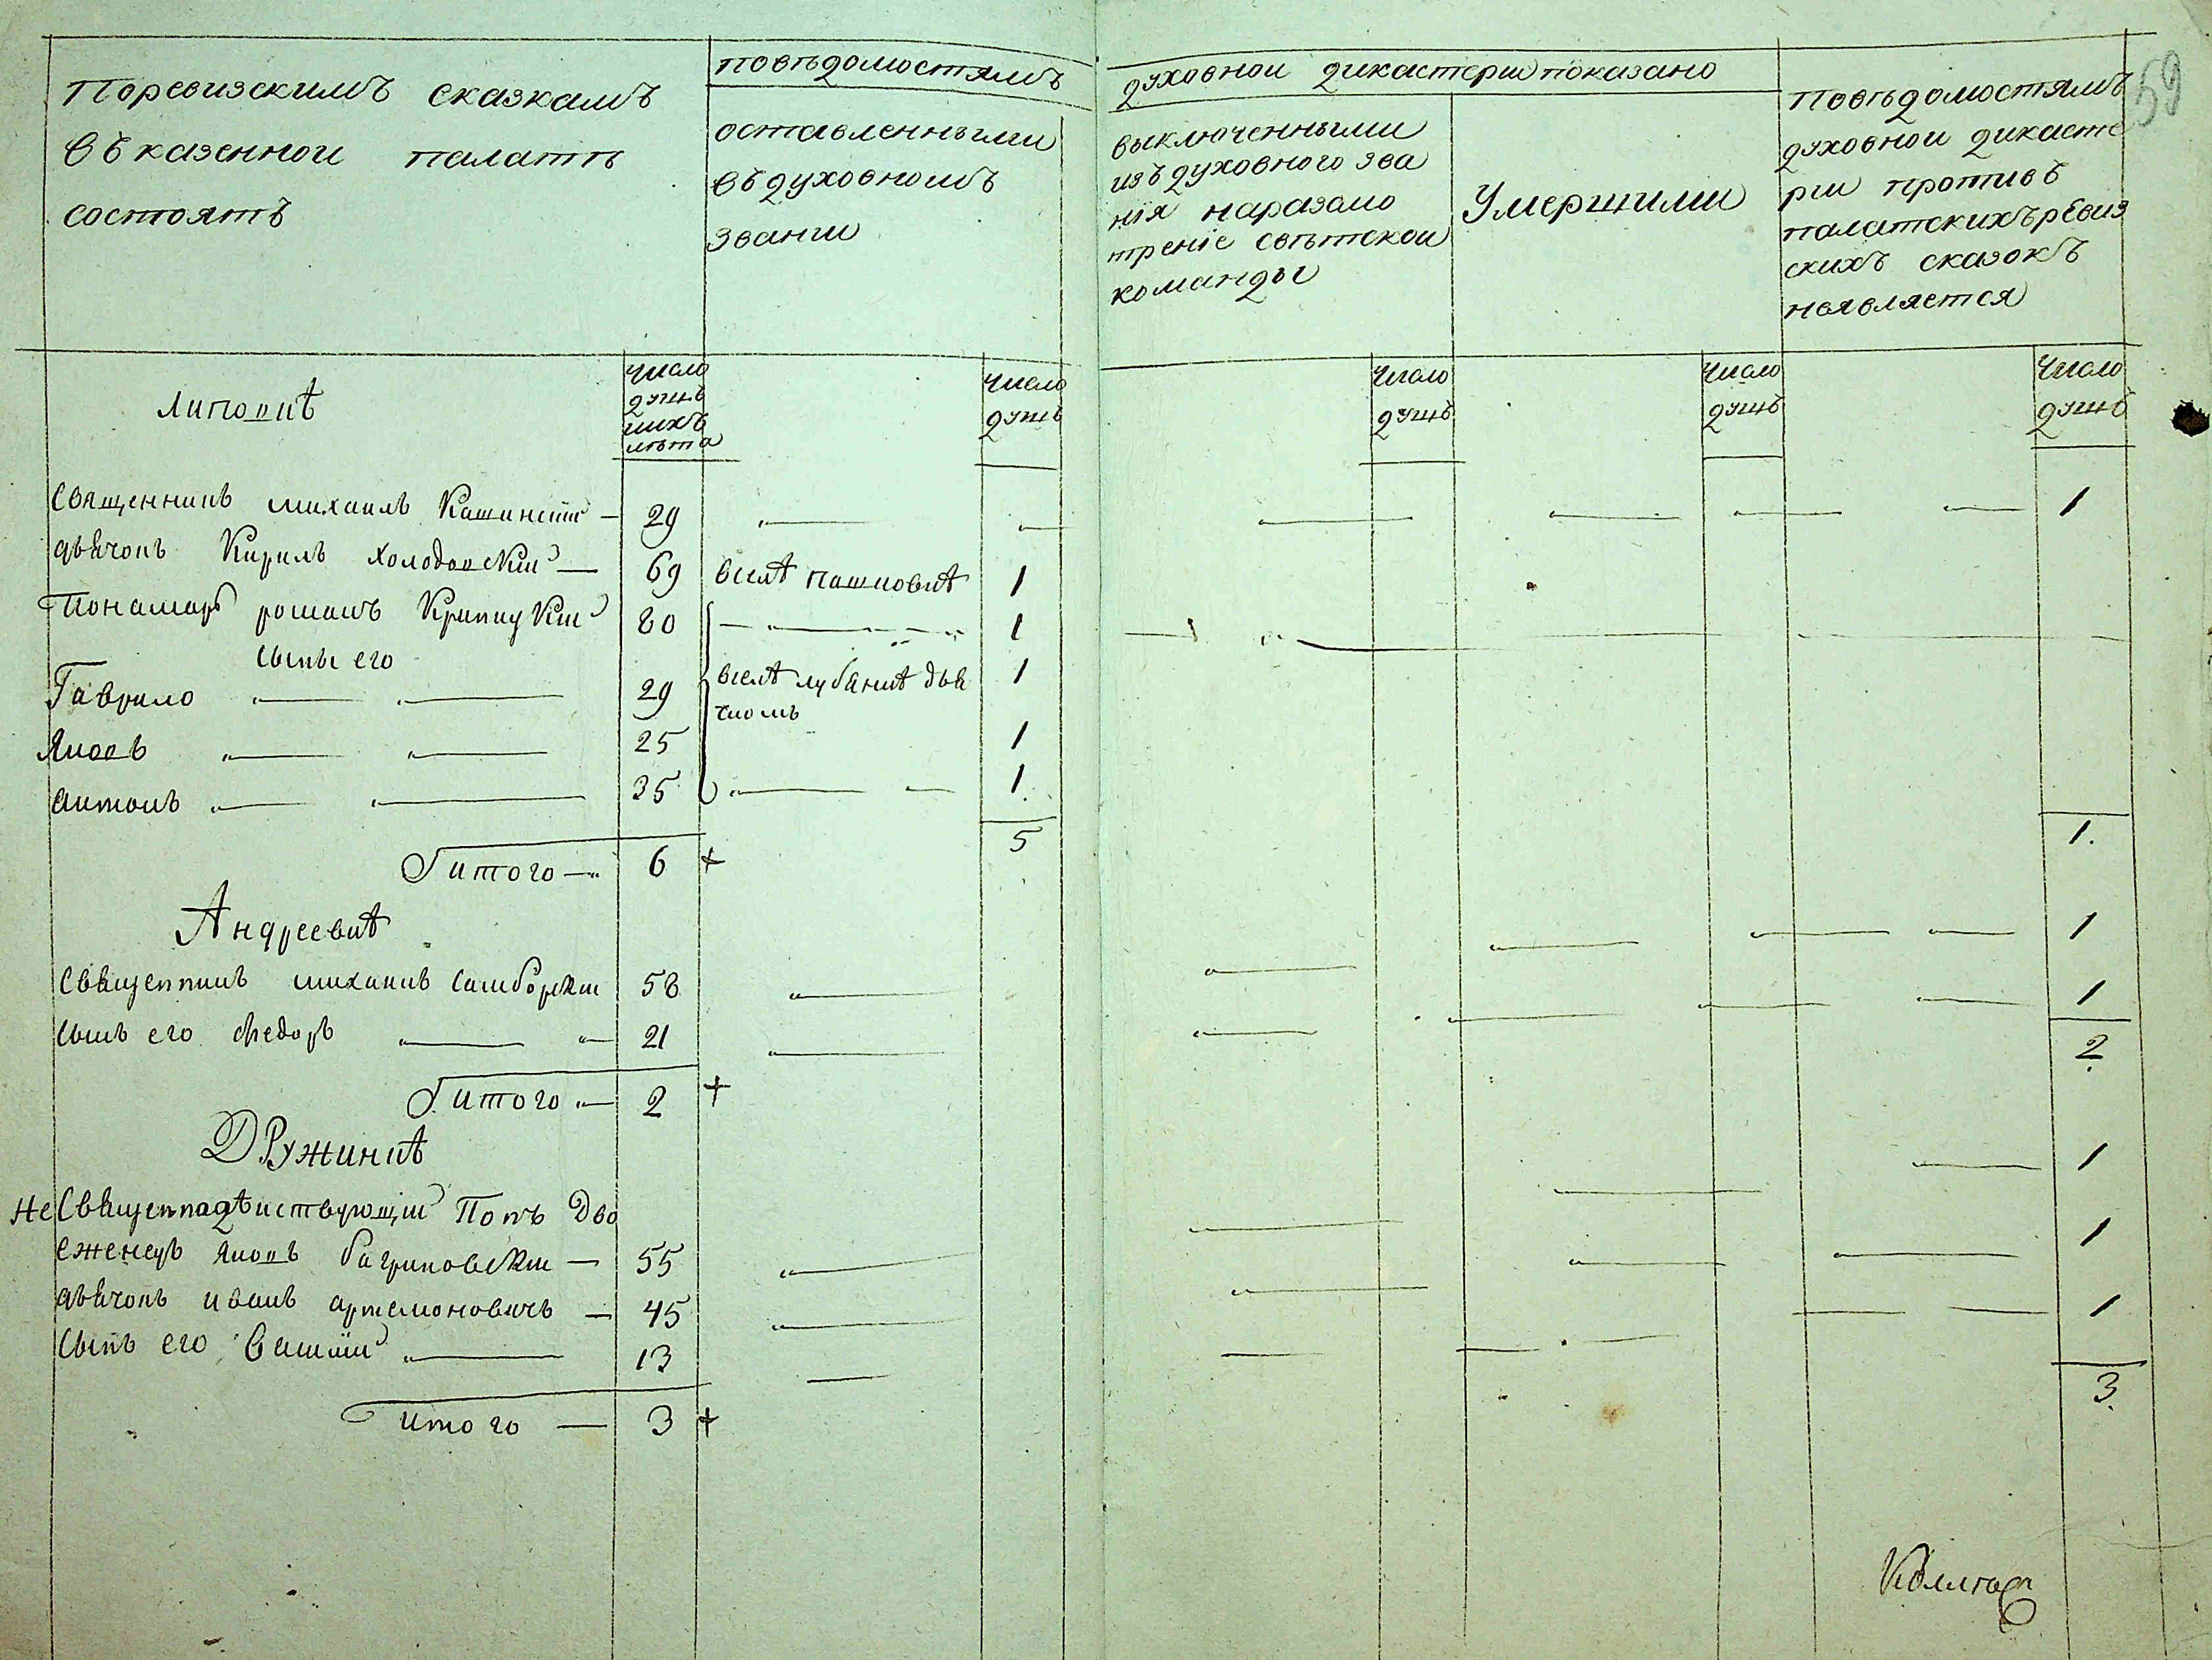 поревизскимъ сказкамъ
въ казенной палатѣ
состоятъ
повѣдомостямъ
оставленными
въ духовномъ
звании
духовной дикастерии показано
выключенными
изъ духовного зва
нія наразсмо
трение свѣтской
команды
Умершими
повѣдомостямъ
духовной дикасте
рии противъ
палатскихъ ревиз
скихъ сказокъ
неявляется
59
Липовкѣ
число
душъ
ихъ
лѣта
число
душъ
число
душъ
число
душъ
число
душъ
Священникъ михаилъ 29 1
дьячокъ Кирилъ холодовский 69 1
Пономарь романъ 80 1
сыны его
Гаврило 29 1
Яковъ 25 1
антонъ 35 1
итого 6 + 5 1.
Андреевкѣ
Священникъ михаилъ самборский 58 1
сынъ его федоръ 21 1
итого 2 + 2
Дружинкѣ
Не Священнодѣйствующий Попъ Дво
еженецъ яковъ багриновский 55 1
дьячокъ иванъ артемоновичъ 45 1
сынъ его Василий 13 1
итого 3 + 3